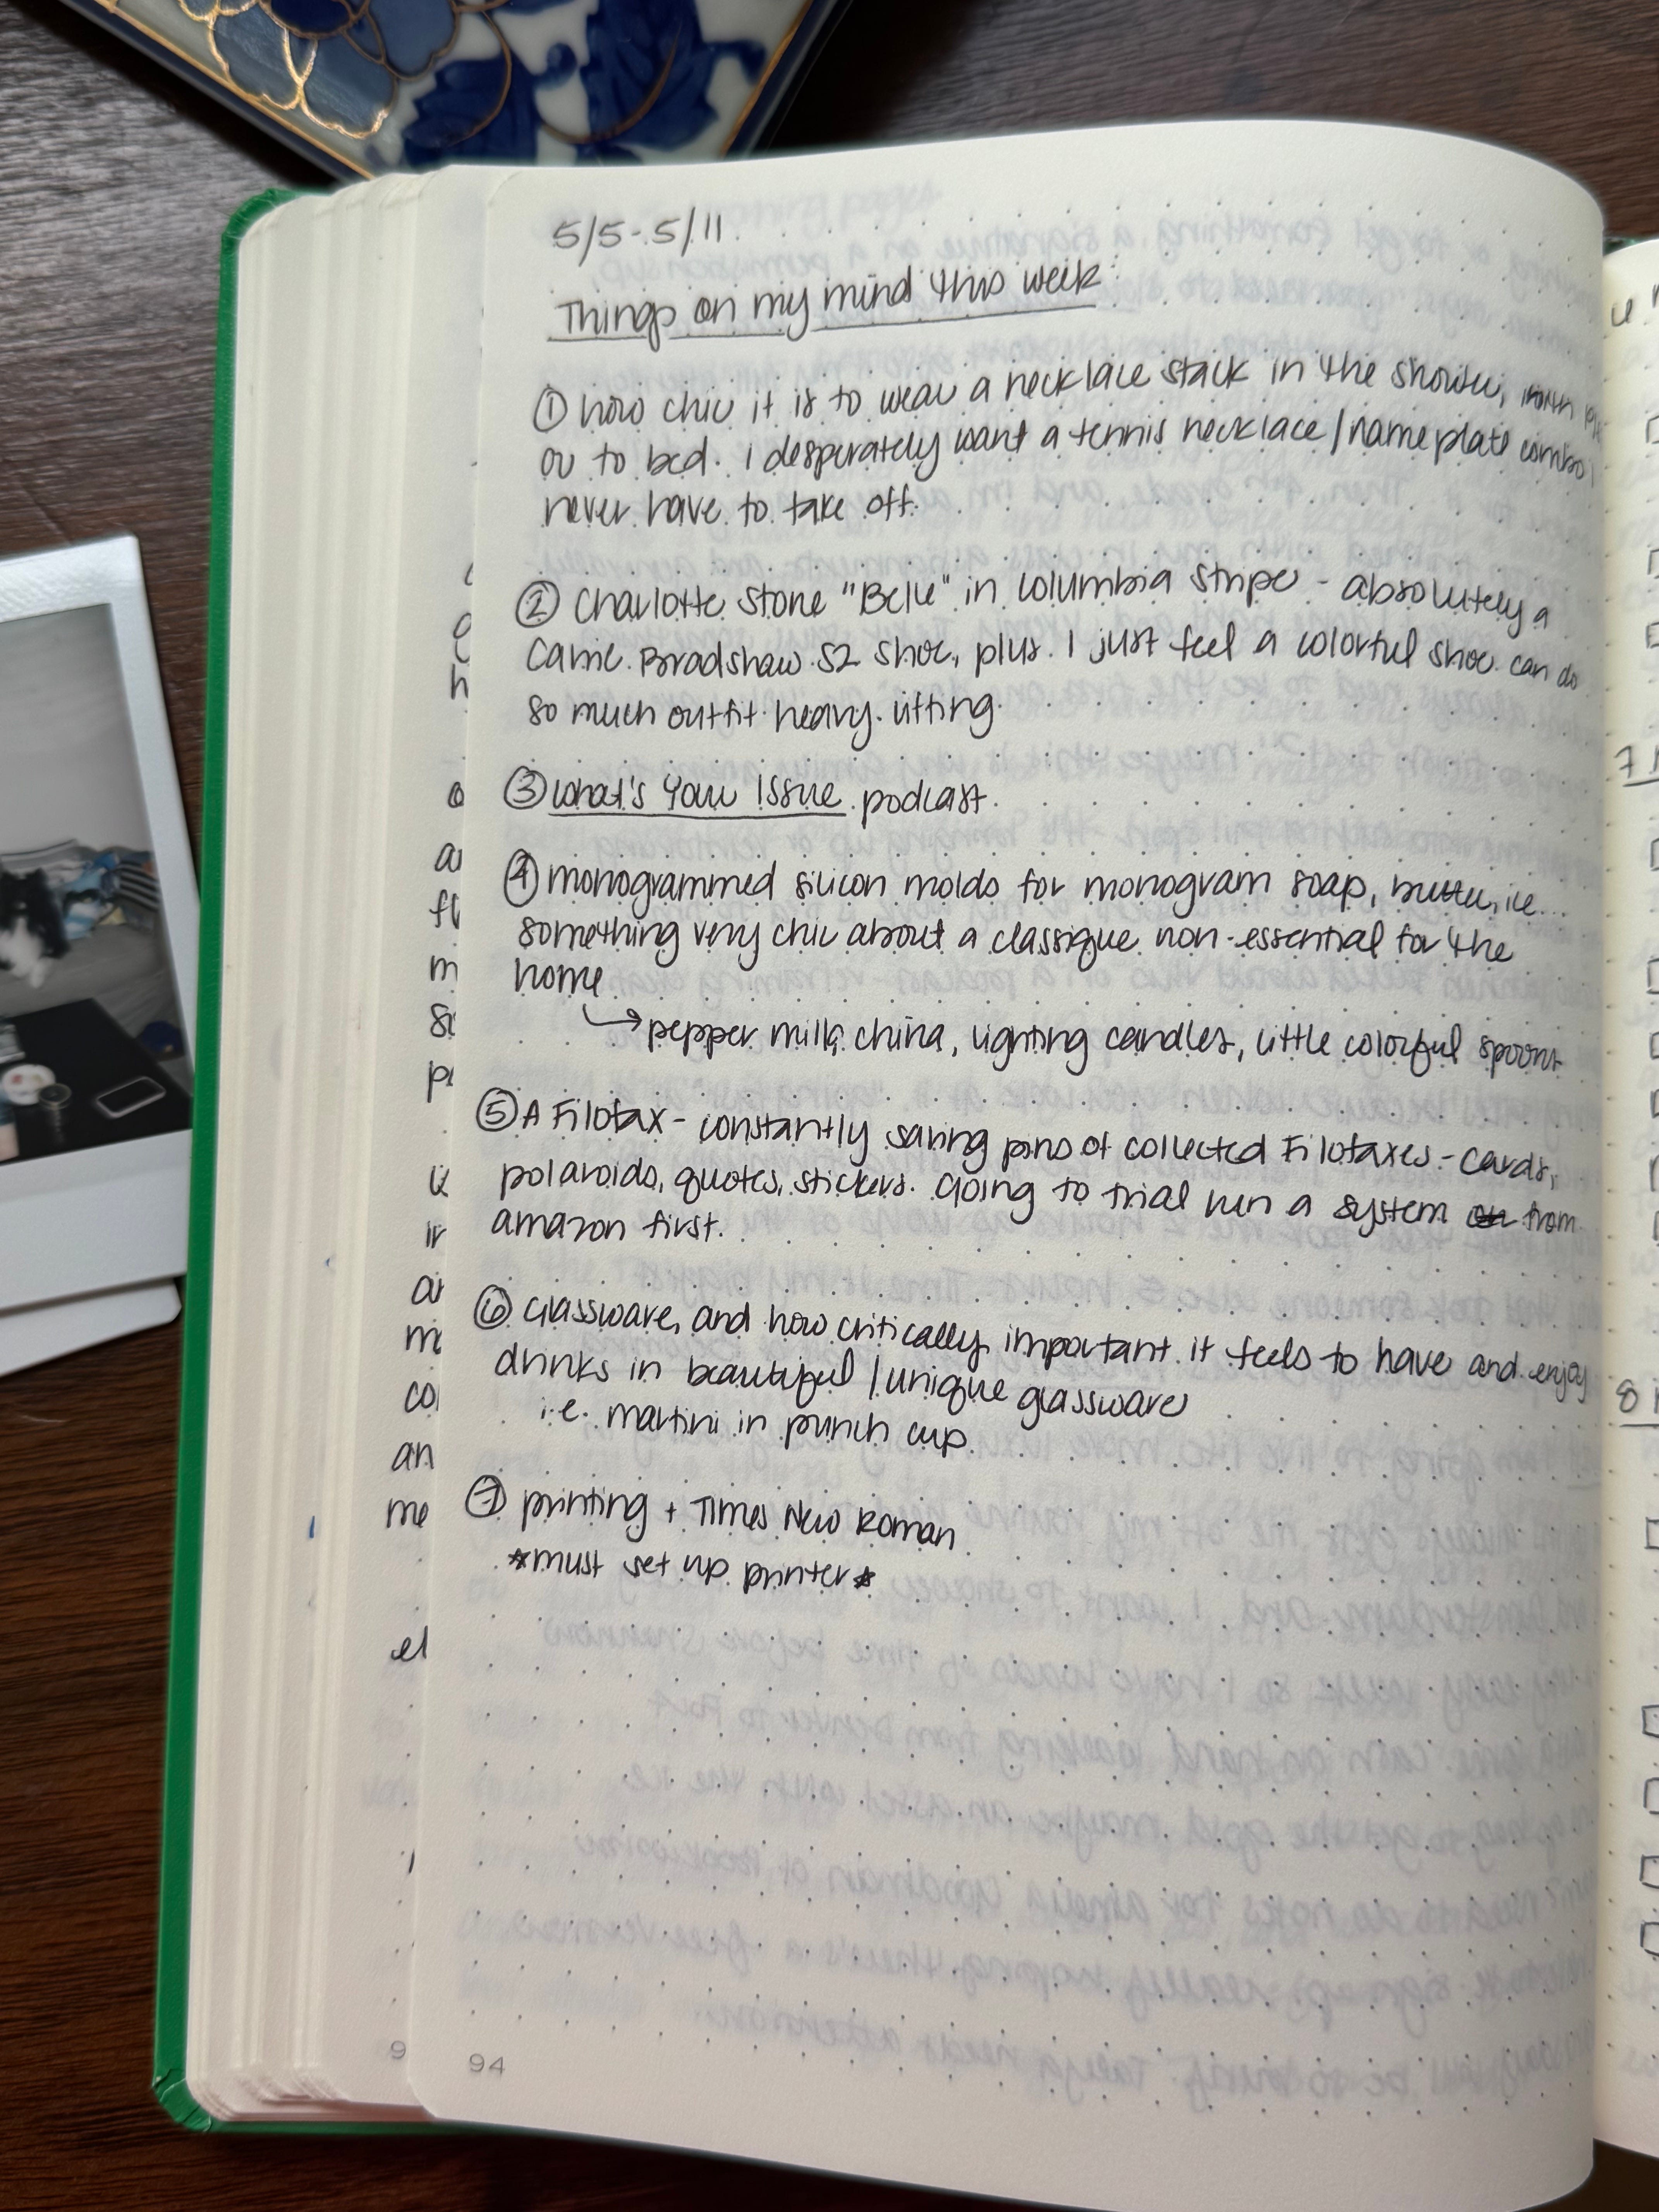 5/5-5/11
Things on my mind this week:
① how chic it is to wear a necklace stack in the shower,
or to bed. I desperately want a tennis necklace/nameplate combo I
never have to take off.
② Charlotte Stone "Belle" in Columbia Stripe - absolutely a
Carrie Bradshaw S2 shoe, plus I just feel a colorful shoe can do
so much outfit heavy lifting.
③ What's Your Issue podcast.
④ monogrammed silicon molds for monogram soap, butter, ice...
something very chic about a classique non-essential for the
home
↳ pepper mills, china, lighting candles, little colorful spoons
⑤ A Filofax - constantly saving pins of collected Filofaxes - cards,
polaroids, quotes, stickers. Going to trial run a system from
amazon first.
⑥ Glassware, and how critically important it feels to have and enjoy
drinks in beautiful/unique glassware
i.e. martini in punch cup.
⑦ printing + Times New Roman
*must set up printer*
94